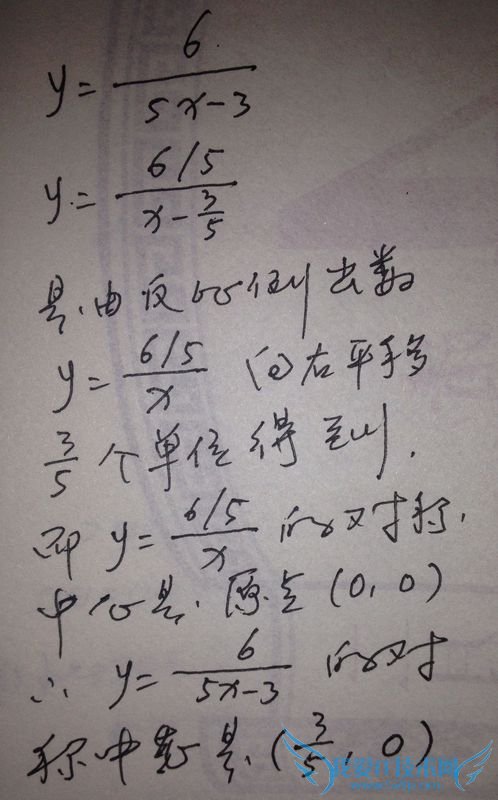 y = 6/(5x-3)
y = (6/5)/(x-3/5)
是由反比例函数
y = (6/5)/x 向右平移
3/5 个单位得到,
而 y = (6/5)/x 的对称
中心是原点 (0, 0)
∴ y = 6/(5x-3) 的对
称中心是 (3/5, 0)